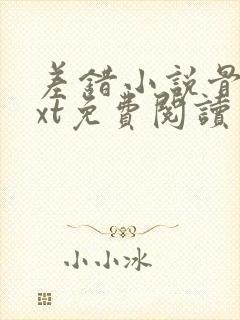 差錯小説
xt免費閱讀
小小冰